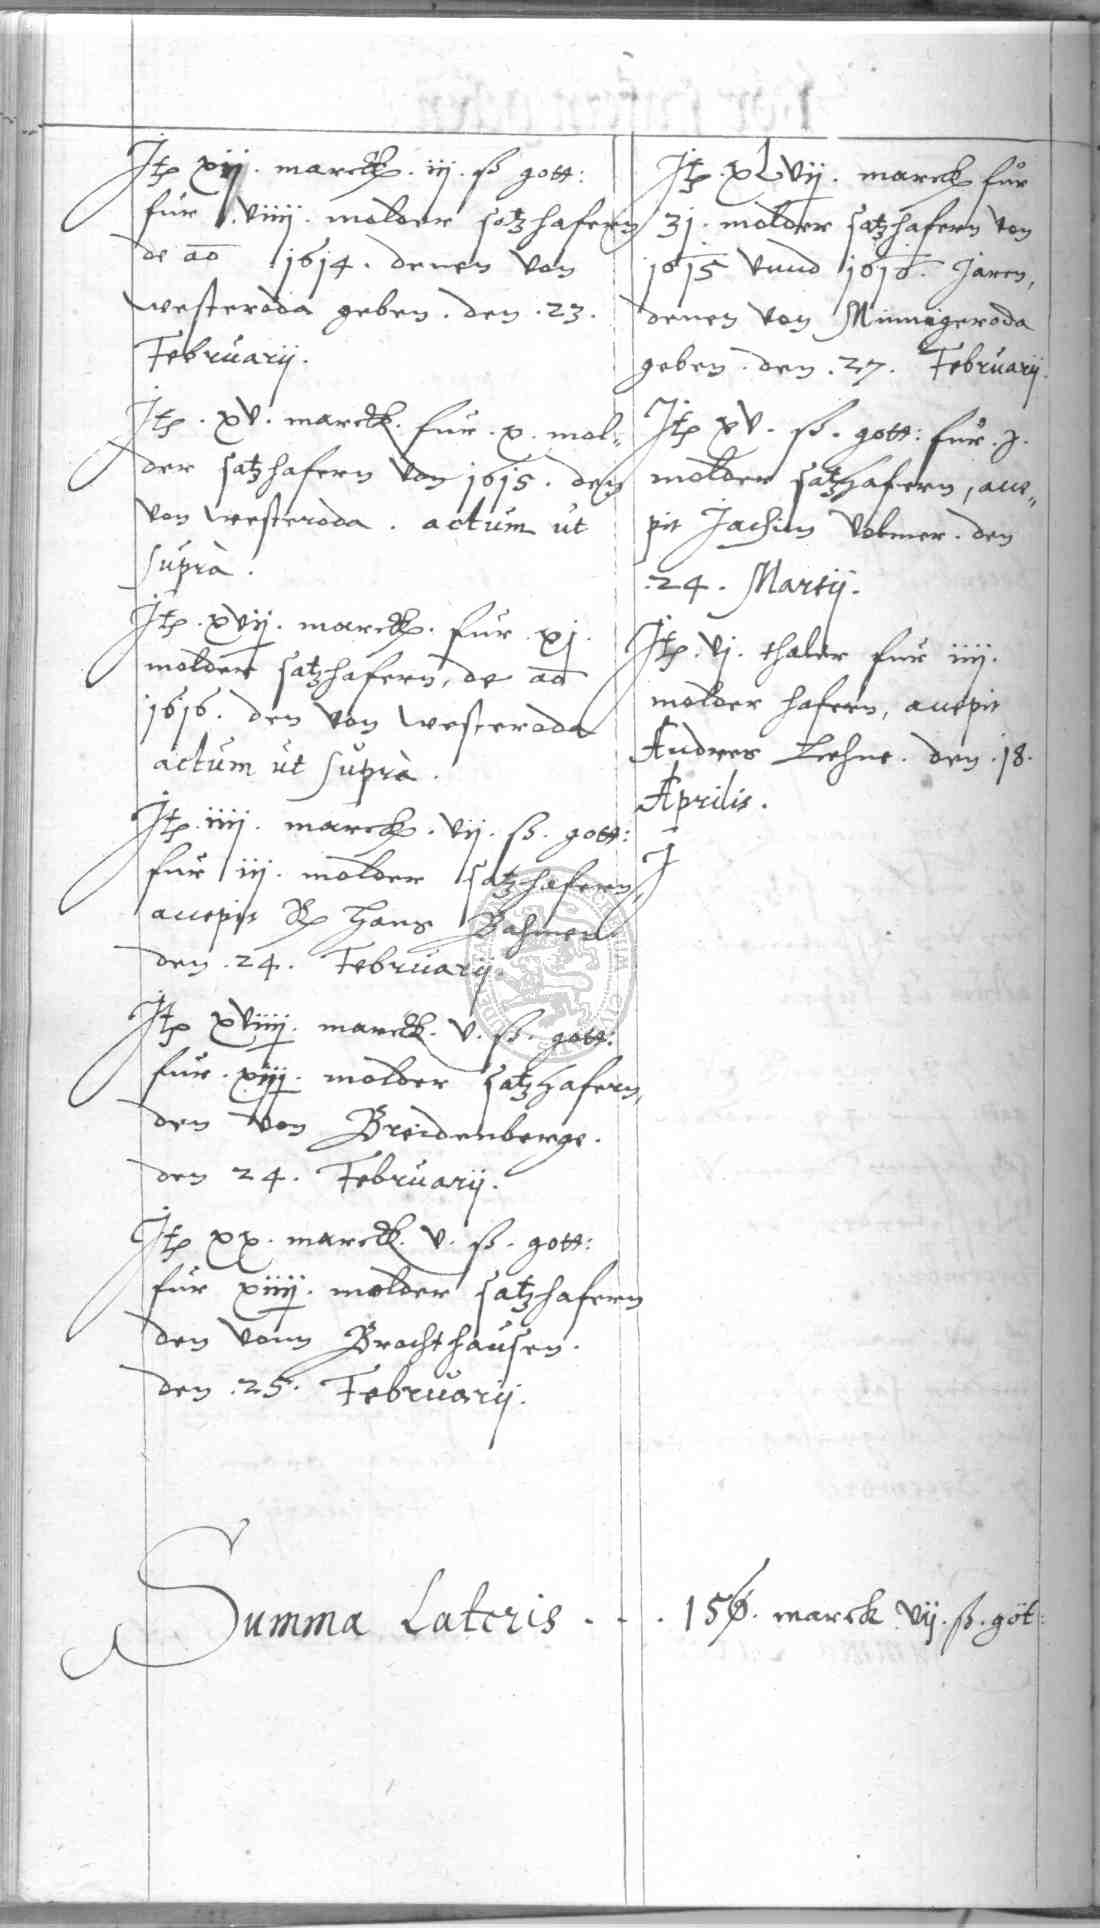 Jtp xij. marck. iij. ß gott:
fur viiij. molder satzhafern
de ao 1614. denen von
westeroda geben. den .23.
Februarij.
Jtp. xv. marck. fur .x. mol„
der satzhafern von 1615. den
von westeroda. actum ut
suprà.
Jtp. xvij. marck. fur xj.
molder satzhafern, de ao
1616. den von westeroda
actum ut suprà.
Jtp. iiij. marck. vij. ß. gott:
fur iij. molder satzhafern,
accepit Hans Bahmen
den .24. Februarij.
Jtp xviiij. marck. v. ß. gott:
fur. xiij. molder satzhafern,
den von Breidenberge.
den 24. Februarij.
Jtp xx. marck. v. ß. gott:
fur xiiij. molder satzhafern
den vonn Brochthausen.
den .25. Februarij.
Jtp. xLvij. marck fur
31. molder satzhafern von
1615 vnnd 1616. Jaren,
denen von Minnigeroda
geben. den .27. Februarij.
Jtp xv. ß. gott: fur .j.
molder satzhafern, acce„
pit Jachim Volmer. den
.24. Martij.
Jtp. vj. thaler fur iiij.
molder hafern, accepit
Andres Lehne. den .18.
Aprilis.
Summa Lateris . . . 156. marck vij. ß. gòt: